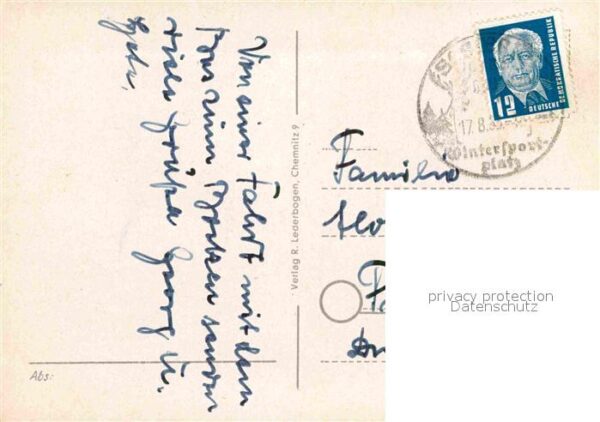 Von einer Fahrt mit dem
Bus zum Brocken senden
viele Grüße Georg u.
Verlag R. Lederbogen, Chemnitz 9
Abs:
12
DEUTSCHE
DEMOKRATISCHE REPUBLIK
17.8.
Wintersport-
platz
Familie
privacy protection
Datenschutz